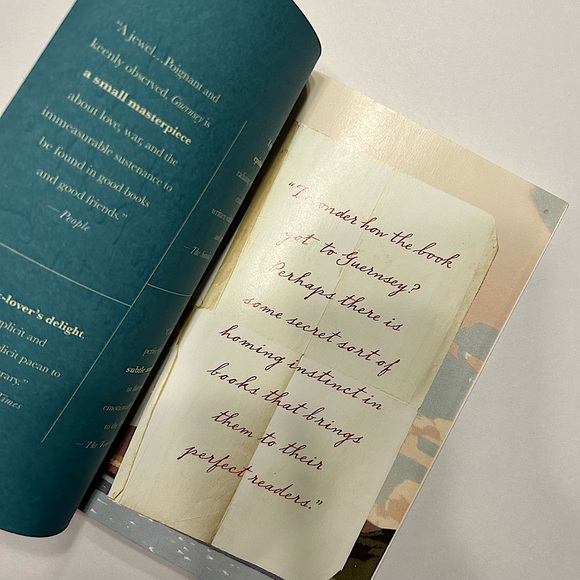 "A jewel... Poignant and
keenly observed, Guernsey is
a small masterpiece
about love, war, and the
immeasurable sustenance to
be found in good books
and good friends."
—People
-lover's delight
plicit and
plicit paean to
rary."
Times
subtle
—The
"I wonder how the book
got to Guernsey?
Perhaps there is
some secret sort of
homing instinct in
books that brings
them to their
perfect readers."